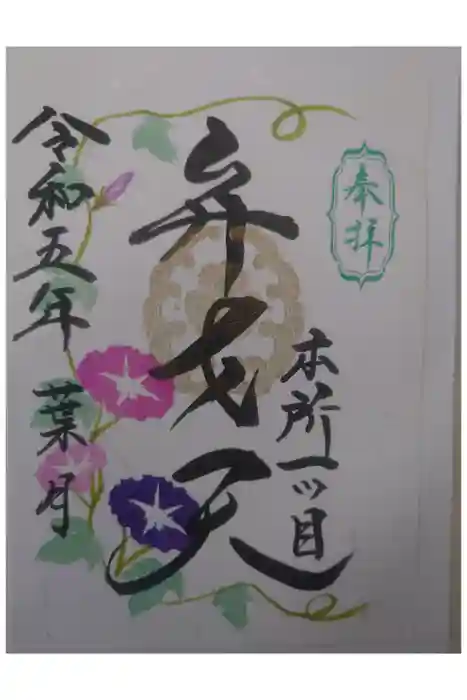 奉拝
本所一ツ目
弁才天
令和五年 葉月